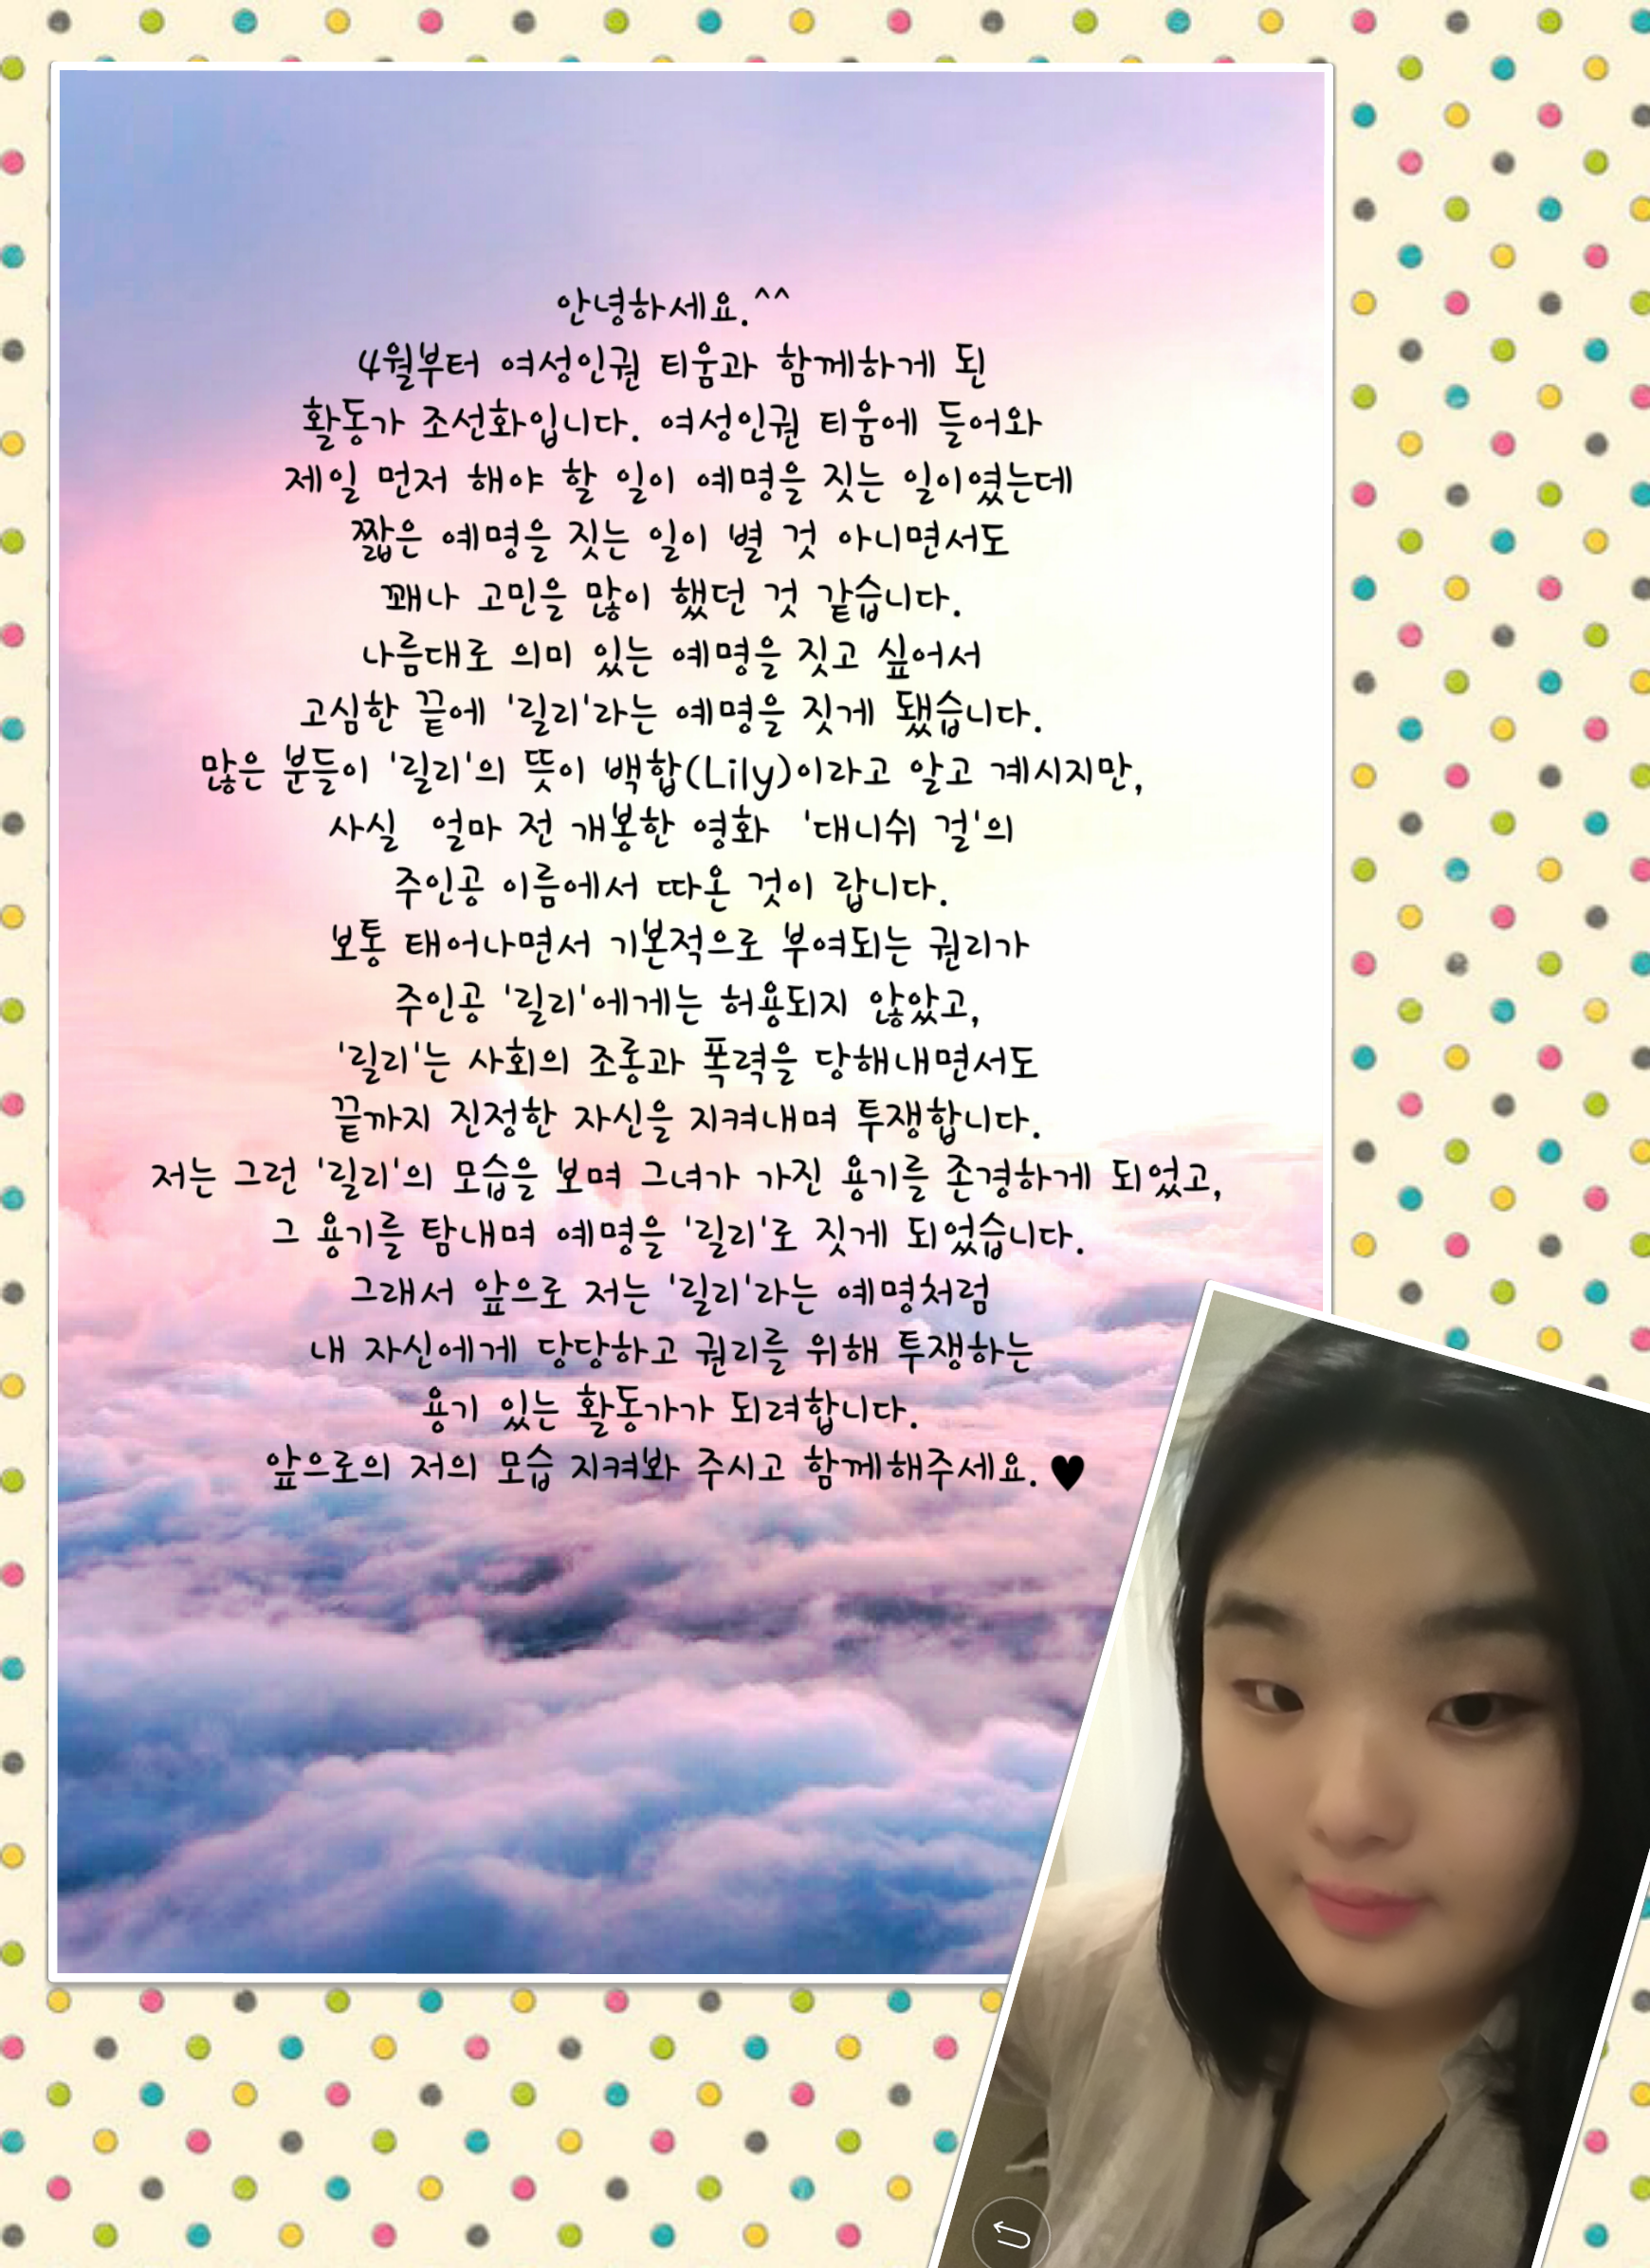 안녕하세요.^^
4월부터 여성인권 티움과 함께하게 된
활동가 조선화입니다. 여성인권 티움에 들어와
제일 먼저 해야 할 일이 예명을 짓는 일이였는데
짧은 예명을 짓는 일이 별 것 아니면서도
꽤나 고민을 많이 했던 것 같습니다.
나름대로 의미 있는 예명을 짓고 싶어서
고심한 끝에 '릴리'라는 예명을 짓게 됐습니다.
많은 분들이 '릴리'의 뜻이 백합(Lily)이라고 알고 계시지만,
사실 얼마 전 개봉한 영화 '대니쉬 걸'의
주인공 이름에서 따온 것이 랍니다.
보통 태어나면서 기본적으로 부여되는 권리가
주인공 '릴리'에게는 허용되지 않았고,
'릴리'는 사회의 조롱과 폭력을 당해내면서도
끝까지 진정한 자신을 지켜내며 투쟁합니다.
저는 그런 '릴리'의 모습을 보며 그녀가 가진 용기를 존경하게 되었고,
그 용기를 탐내며 예명을 '릴리'로 짓게 되었습니다.
그래서 앞으로 저는 '릴리'라는 예명처럼
내 자신에게 당당하고 권리를 위해 투쟁하는
용기 있는 활동가가 되려합니다.
앞으로의 저의 모습 지켜봐 주시고 함께해주세요.♥